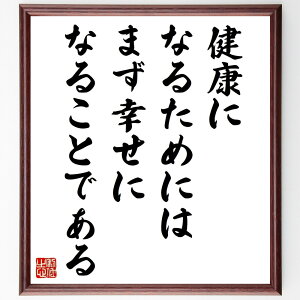 健康に
なるためには
まず幸せに
なることである